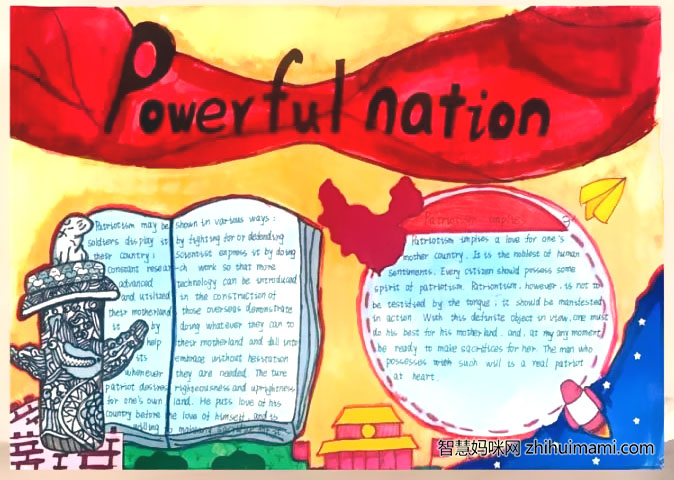 Powerful nation
Patriotism may be shown in various ways:
soldiers display it by fighting for or defending
their country; Scientist express it by doing
constant resear-ch work so that more
advanced technology can be introduced
and utilized in the construction of
their motherland those overseas demonstrate
it by doing whatever they can to
help their motherland and fall into
its embrace without hesitation
whenever they are needed. The ture
patriot desires righteousness and uprightness
for one's own land. He puts love of his
country before the love of himself, and is
willing to
Patriotism implies
Patriotism implies a love for one's
mother country. It is the noblest of human
sentiments. Every citizen should possess some
spirit of patriotism. Patriontism, however, is not to
be testified by the tongue; it should be manifested
in action. With this definite object in view, one must
do his best for his motherland, and, at my any moment,
be ready to make sacrifices for her. The man who
possesses with such will is a real patriot
at heart.
智慧妈咪网 zhihuimami.com